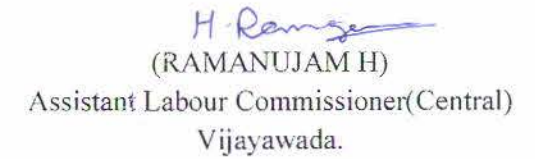 H. Ramanujam
(RAMANUJAM H)
Assistant Labour Commissioner(Central)
Vijayawada.